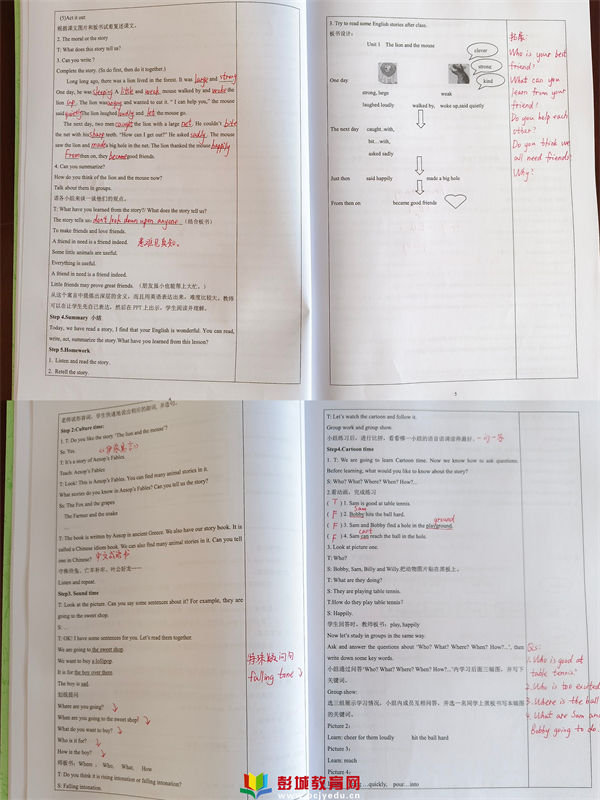 (5)Act it out
根据课文图片和板书试着复述课文。
2. The moral or the story
T: What does this story tell us?
3. Can you write?
Complete the story. (Ss do first, then do it together.)
Long long ago, there was a lion lived in the forest. It was large and strong
One day, he was sleeping A little and weak mouse walked by and woke the
lion up. The lion was angry and wanted to eat it. " I can help you," the mouse
said quietly the lion laughed loudly and let the mouse go.
The next day, two men caught the lion with a large net. He couldn't bite
the net with his sharp teeth. "How can I get out?" He asked sadly. The mouse
saw the lion and made a big hole in the net. The lion thanked the mouse happily
From then on, they became good friends.
4. Can you summarize?
How do you think of the lion and the mouse now?
Talk about them in groups.
请各小组来谈一谈他们的观点。
T: What have you learned from the story?/ What does the story tell us?
The story tells us: don't look down upon anyone (结合板书)
To make friends and love friends.
A friend in need is a friend indeed. 患难见真知。
Some little animals are useful.
Everything is useful.
A friend in need is a friend indeed.
Little friends may prove great friends. (朋友虽小也能帮上大忙。)
从这个寓言中提炼出深层的含义,而且用英语表达出来,难度比较大。教师
可以在让学生先自己表达,然后在 PPT 上出示,学生阅读并理解。
Step 4.Summary 小结
Today, we have read a story, I find that your English is wonderful. You can read,
write, act, summarize the story.What have you learned from this lesson?
Step 5.Homework
1. Listen and read the story.
2. Retell the story.
3. Try to read some English stories after class.
板书设计:
Unit 1 The lion and the mouse
clever
strong
kind
One day
strong, large weak
laughed loudly walked by, woke up,said quietly
The next day caught..with,
bit…with,
asked sadly
Just then said happily made a big hole
From then on became good friends
5
拓展:
Who is your best
friend?
What can you
learn from your
friend?
Do you help each
other?
Do you think we
all need friends?
Why?
Step 2:Culture time:
1. T: Do you like the story "The lion and the mouse"?
Ss: Yes.
T: It's a story of Aesop's Fables.
《伊索寓言》
Teach: Aesop's Fables
T: Look! This is Aesop's Fables. You can find many animal stories in it.
What stories do you know in Aesop's Fables? Can you tell us the story?
Ss: The Fox and the grapes
The Farmer and the snake
…
T: The book is written by Aesop in ancient Greece. We also have our story book. It is
called a Chinese idiom book. We can also find many animal stories in it. Can you tell
one in Chinese? 中文成语书
守株待兔,亡羊补牢,叶公好龙……
Listen and repeat.
Step3. Sound time
T: Look at the picture. Can you say some sentences about it? For example, they are
going to the sweet shop.
S: …
T: OK! I have some sentences for you. Let's read them together.
We are going to the sweet shop.
We want to buy a lollipop.
It is for the boy over there.
The boy is sad.
划线提问
Where are you going?
When are you going to the sweet shop?
What do you want to buy?
Who is it for?
How is the boy?
师板书:Where, Who, What, How
T: Do you think it is rising intonation or falling intonation?
S: Falling intonation.
特殊疑问句
falling tone
T: Let's watch the cartoon and follow it.
Group work and group show.
小组练习后,进行比拼,看看哪一小组的语音语调读得最好。一问一答
Step4.Cartoon time
1. T: We are going to learn Cartoon time. Now we know how to ask questions.
Before learning, what would you like to know about the story?
S: Who? What? Where? When? How?...
2.看动画,完成练习
( T ) 1. Sam is good at table tennis.
Sam
( F ) 2. Bobby hits the ball hard.
ground
( F ) 3. Sam and Bobby find a hole in the playground.
can't
( F ) 4. Sam can reach the ball in the hole.
3. Look at picture one.
T: Who?
S: Bobby, Sam, Billy and Willy.把动物图片贴在黑板上。
T: What are they doing?
S: They are playing table tennis.
T:How do they play table tennis?
S: Happily.
学生回答时,教师板书:play, happily
Now let's study in groups in the same way.
Ask and answer the questions about "Who? What? Where? When? How?...", then
write down some key words.
小组通过问答"Who? What? Where? When? How?..."内学习后面三幅图,并写下
关键词。
Group show:
选三组展示学习情况,小组内成员互相问答,并选一名同学上黑板书写本幅图
的关键词。
Picture 2:
Learn: cheer for them loudly hit the ball hard
Picture 3:
Learn: reach
Picture 4:
…quickly, pour…into
Qs:
1. Who is good at
table tennis?
2. Who is too excited
3. Where is the ball
4. What are Sam and
Bobby going to do.
彭城教育网
www.pcjyedu.cn